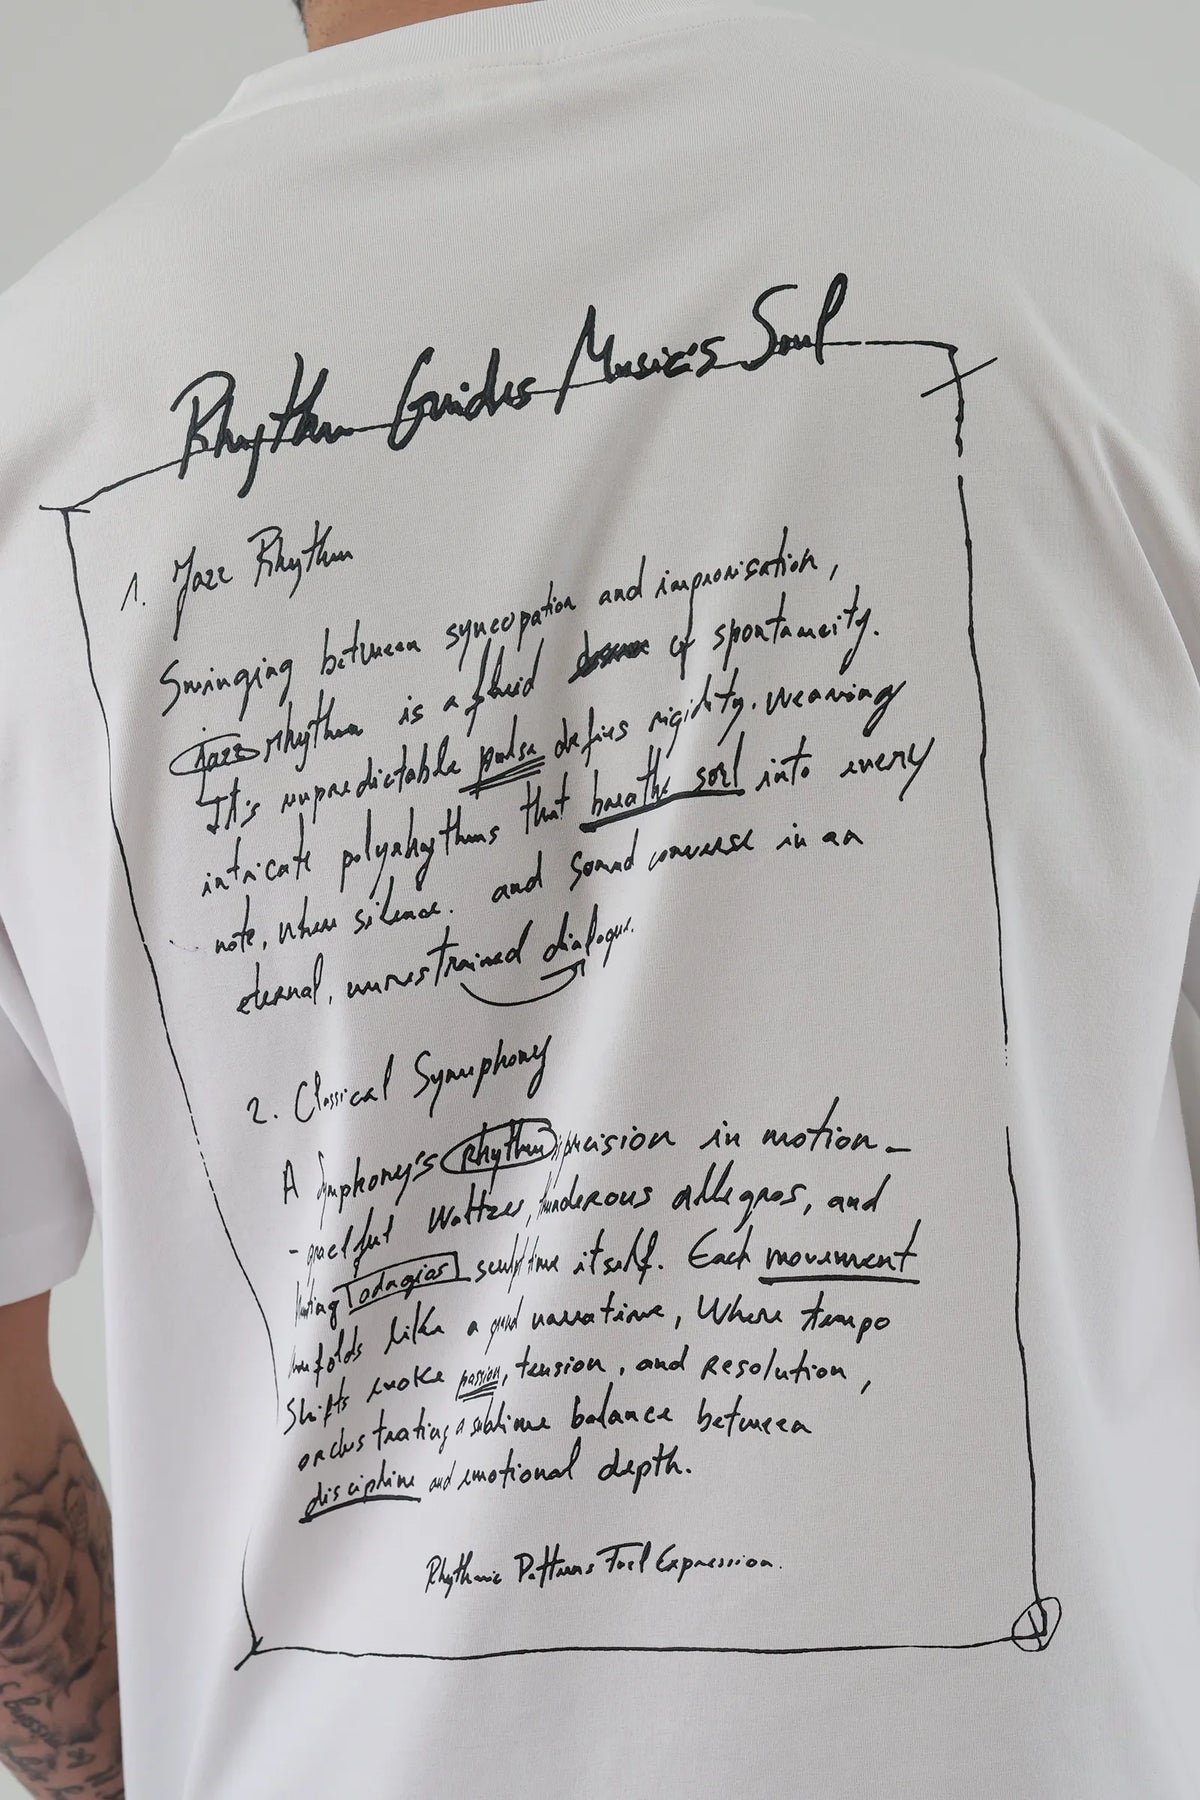 Rhythm Guides Music's Soul
1. Jazz Rhythm
Swinging between syncopation and improvisation,
jazz rhythm is a fluid of spontaneity.
It's unpredictable pulse defies rigidity. weaving
intricate polyrhythms that breathe soul into every
note, where silence. and sound converse in an
eternal, unrestrained dialogue.
2. Classical Symphony
A Symphony's rhythm is precision in motion -
- graceful waltzes, thunderous allegros, and
adagios sculpt time itself. Each movement
unfolds like a grand narrative, Where tempo
Shifts evoke passion, tension, and Resolution,
orchestrating a sublime balance between
discipline and emotional depth.
Rhythmic Patterns Fuel Expression.